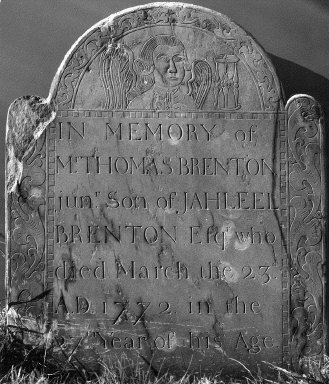 IN MEMORY of
Mr. THOMAS BRENTON
junr. Son of JAHLEEL
BRENTON Esqr. who
died March the 23.
A.D. 1772 in the
Year of his Age